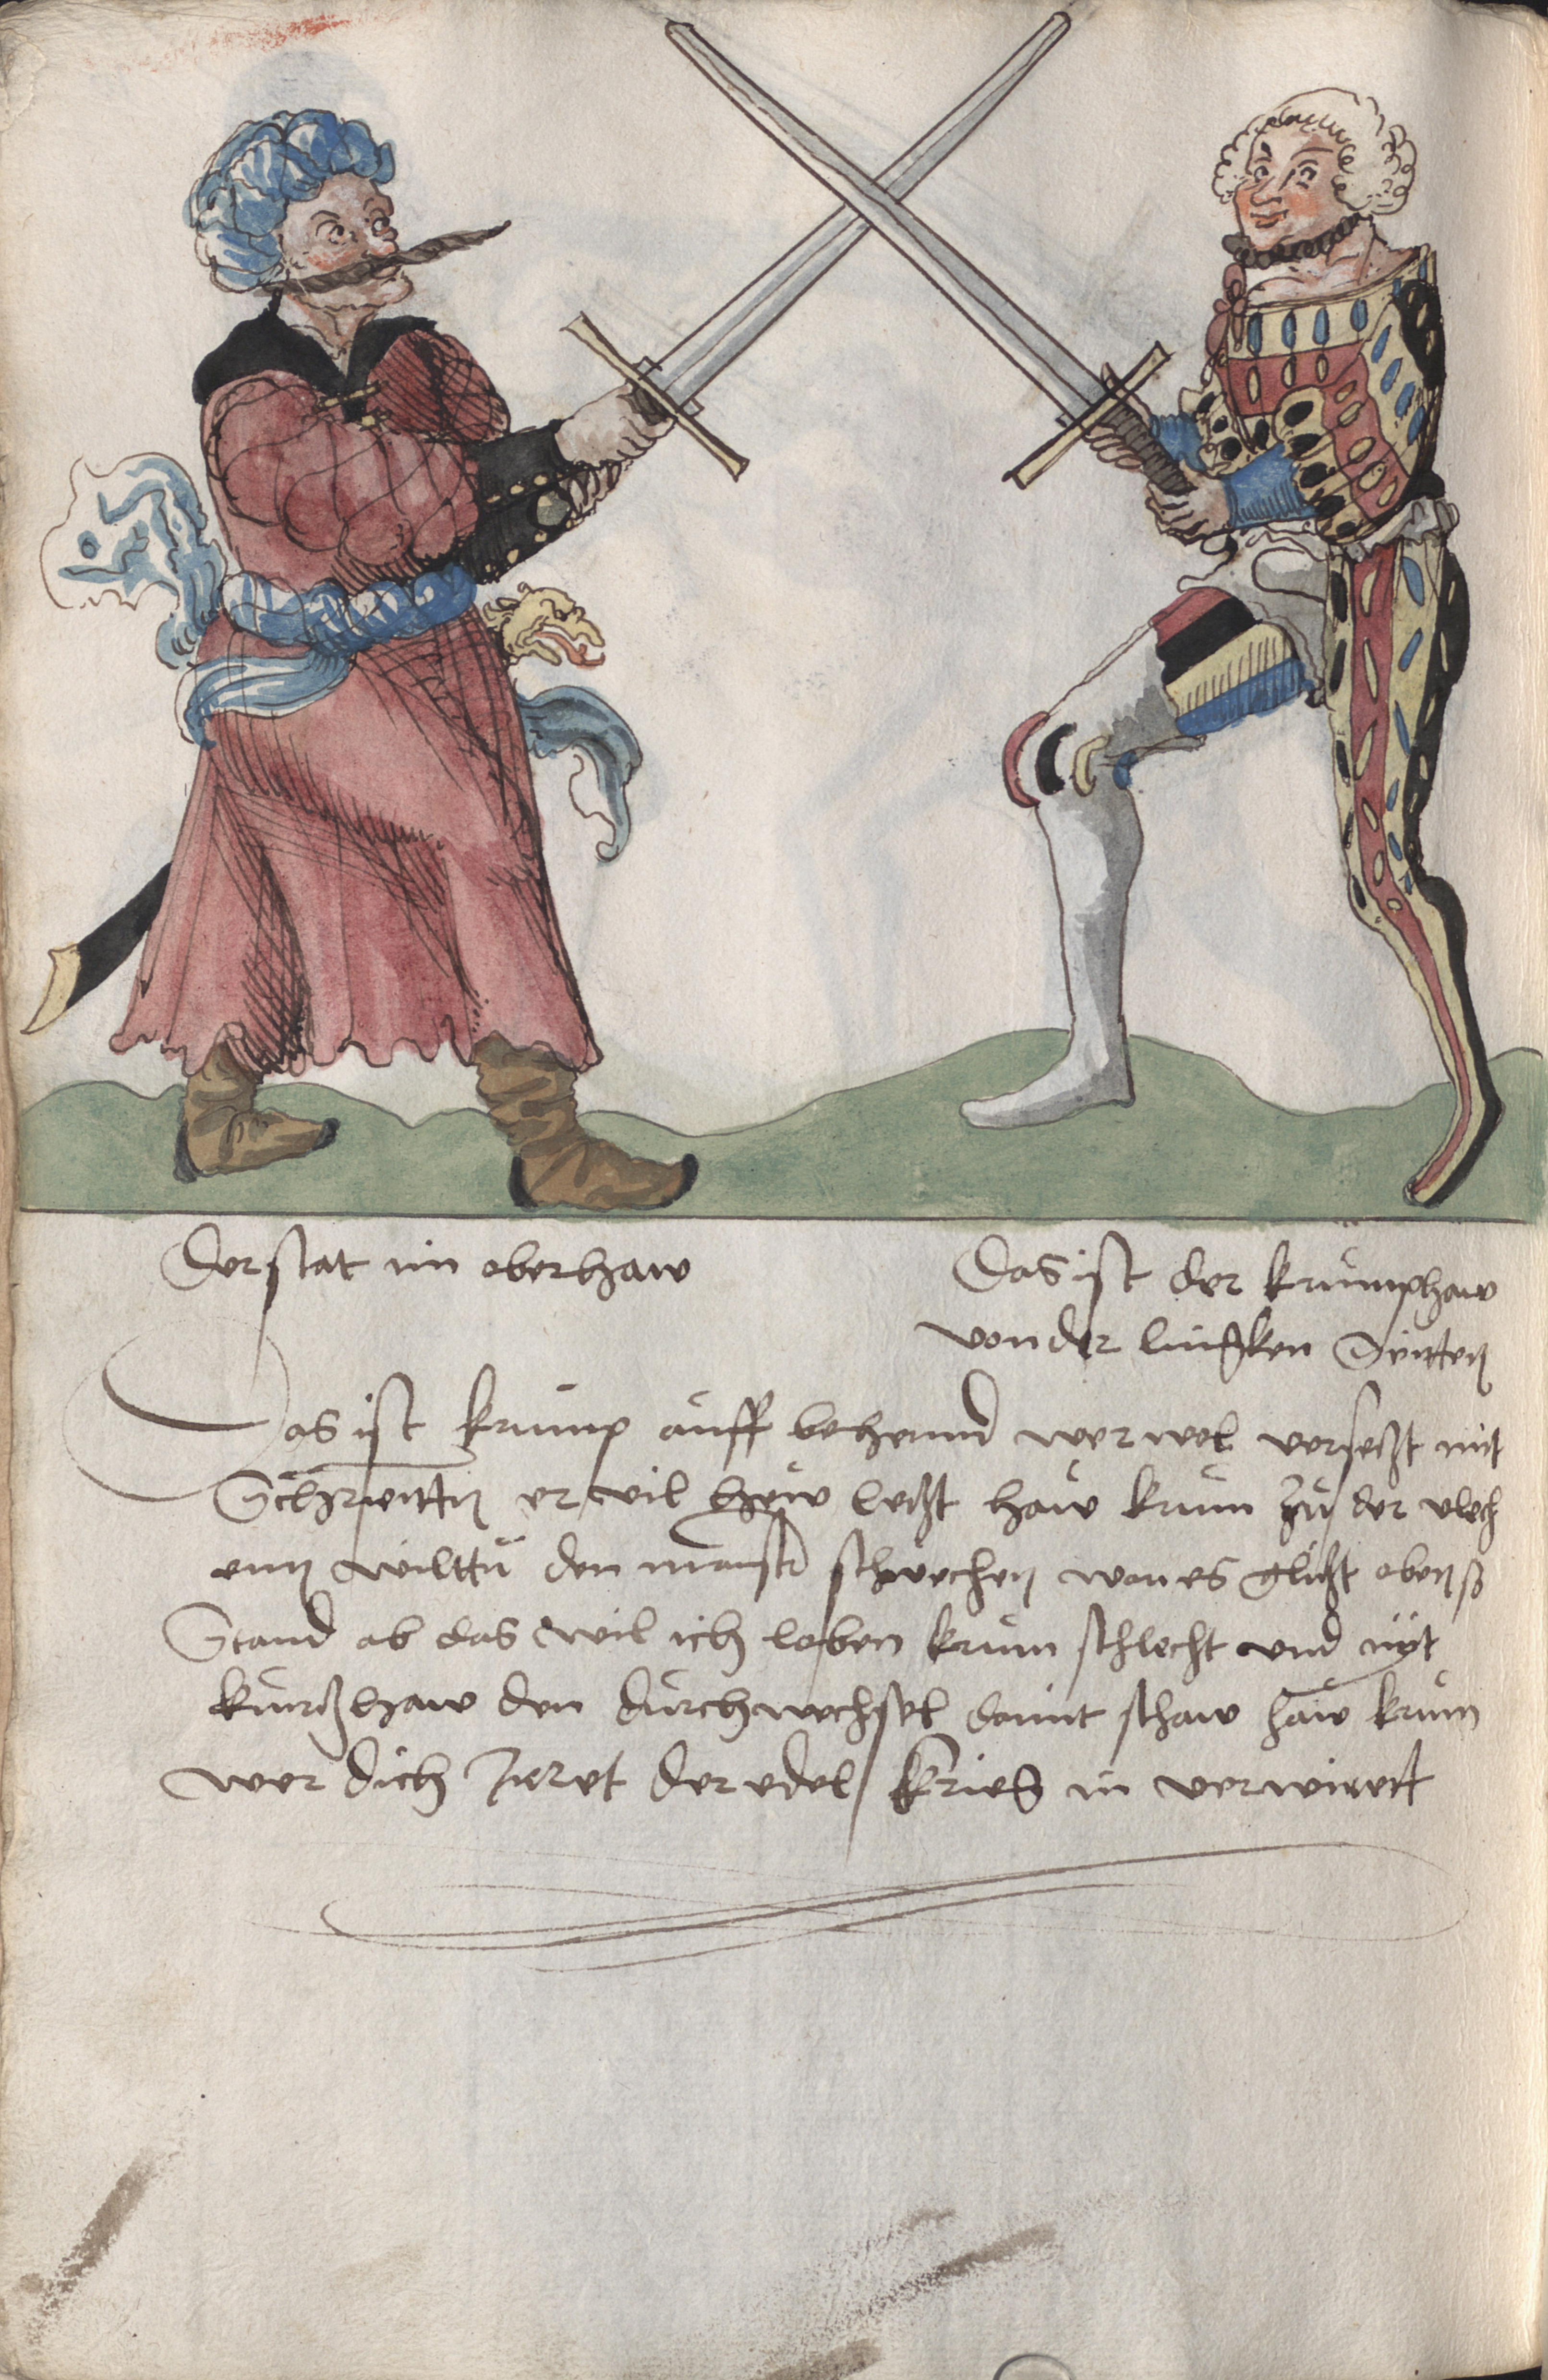 Der stat im oberhaw
Das ist der krumphaw
von der lincken Seitten
Das ist krump auff behennd wer wol versetzt mit
Schreitten er vil hew letzt haw krum zu der vlech
enn wilttu den maistr schwechen wan es glitzt oben so
Stand ab das wil ich loben krum schlecht vnd nit
kurtzhaw den durchwechsel damit schaw haw krum
wer dich Irret der edel krieg in verwirrt